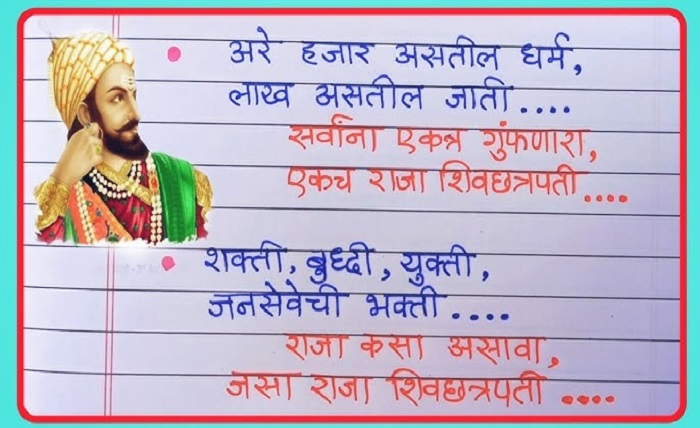 अरे हजार असतील धर्म,
लाख असतील जाती....
सर्वांना एकत्र गुंफणारा,
एकच राजा शिवछत्रपती....
शक्ती, बुध्दी, युक्ती,
जनसेवेची भक्ती....
राजा कसा असावा,
जसा राजा शिवछत्रपती ....